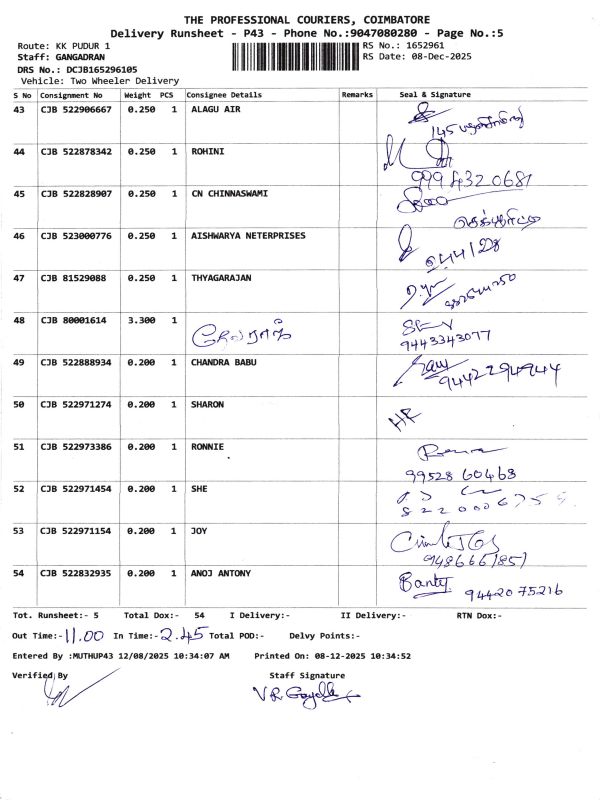 THE PROFESSIONAL COURIERS, COIMBATORE
Delivery Runsheet - P43 - Phone No.:9047080280 - Page No.:5
Route: KK PUDUR 1 RS No.: 1652961
Staff: GANGADRAN RS Date: 08-Dec-2025
DRS No.: DCJB165296105
Vehicle: Two Wheeler Delivery
S No Consignment No Weight PCS Consignee Details Remarks Seal & Signature
43 CJB 522906667 0.250 1 ALAGU AIR
145
44 CJB 522878342 0.250 1 ROHINI
999 432 0681
45 CJB 522828907 0.250 1 CN CHINNASWAMI
46 CJB 523000776 0.250 1 AISHWARYA NETERPRISES
47 CJB 81529088 0.250 1 THYAGARAJAN
48 CJB 80001614 3.300 1
9443343077
49 CJB 522888934 0.200 1 CHANDRA BABU
9442294944
50 CJB 522971274 0.200 1 SHARON
HR
51 CJB 522973386 0.200 1 RONNIE
99528 60463
52 CJB 522971454 0.200 1 SHE
53 CJB 522971154 0.200 1 JOY
54 CJB 522832935 0.200 1 ANOJ ANTONY
Banty 9442075216
Tot. Runsheet:- 5 Total Dox:- 54 I Delivery:- II Delivery:- RTN Dox:-
Out Time:- 11.00 In Time:- 2.45 Total POD:- Delvy Points:-
Entered By :MUTHUP43 12/08/2025 10:34:07 AM Printed On: 08-12-2025 10:34:52
Verified By Staff Signature